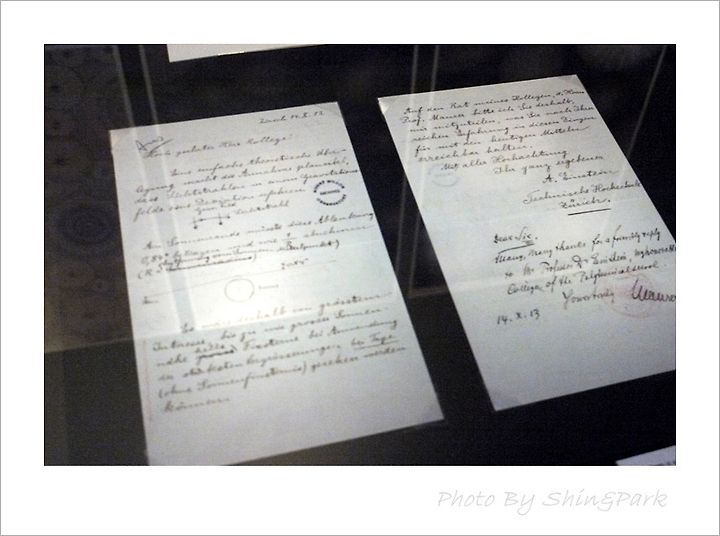 Zürich 14. X. 13.
Hoch geehrter Herr Kollege!
Eine einfache theoretische Über-
legung macht die Annahme plausibel,
dass Lichtstrahlen in einem Gravitations-
felde eine Deviation erfahren.
Lichtstrahl
Am Sonnenrande müsste diese Ablenkung
0,84" betragen und wie 1/R abnehmen
(R
0,84"
Es wäre deshalb von grösstem
Interesse, bis zu wie grosser Sonnen-
nähe helle Fixsterne bei Anwendung
der stärksten Vergrösserungen bei Tage
(ohne Sonnenfinsternis) gesehen werden
können.
Auf den Rat meines Kollegen, d. Herrn
Prof. Maurer bitte ich Sie deshalb,
mir mitzuteilen, was Sie nach Ihrer
reichen Erfahrung in diesen Dingen
für mit den heutigen Mitteln
erreichbar halten.
Mit aller Hochachtung
Ihr ganz ergebener
A. Einstein
Technische Hochschule
Zürich.
Dear Sir,
Many, many thanks for a friendly reply
to Mr Professor Dr Einstein, my honorable
Collegue of the Polytechnical School.
Yours truly Maurer
14. X. 13
Photo By Shin&Park